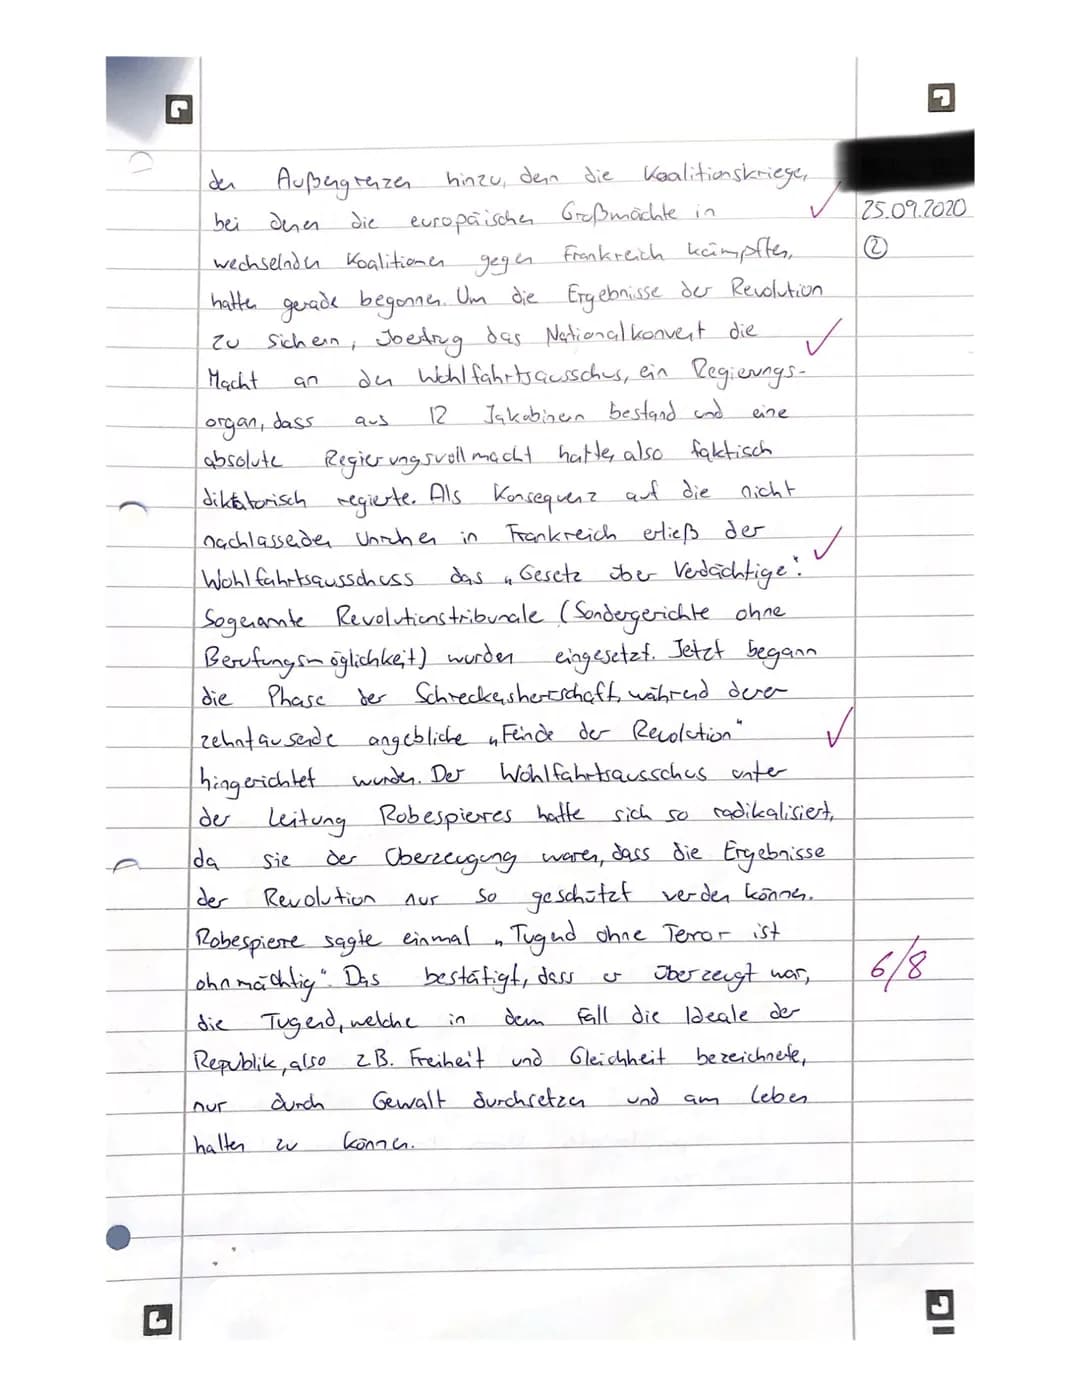 der Außengrenzen hinzu, denn die Koalitionskriege,
bei denen die europäischen Großmächte in
25.09.2020
wechselnden Koalitionen gegen Frankreich kämpften,
②
hatten gerade begonnen. Um die Ergebnisse der Revolution
zu sichern, übertrug das Nationalkonvent die
Macht an den Wohlfahrtsausschus, ein Regierungs-
organ, dass aus 12 Jakobinern bestand und eine
absolute Regierungsvollmacht hatte, also faktisch
diktatorisch regierte. Als Konsequenz auf die nicht
nachlassenden Unruhen in Frankreich erließ der
Wohlfahrtsausschuss das „Gesetz über Verdächtige“.
Sogenannte Revolutionstribunale (Sondergerichte ohne
Berufungsmöglichkeit) wurden eingesetzt. Jetzt begann
die Phase der Schreckensherrschaft, während deren
zehntausende angebliche „Feinde der Revolution“
hingerichtet wurden. Der Wohlfahrtsausschus unter
der Leitung Robespierres hatte sich so radikalisiert,
da sie der Überzeugung waren, dass die Ergebnisse
der Revolution nur so geschützt werden können.
Robespierre sagte einmal „Tugend ohne Terror ist
ohnmächtig“. Das bestätigt, dass er überzeugt war,
6/8
die Tugend, welche in dem Fall die Ideale der
Republik, also z.B. Freiheit und Gleichheit bezeichnete,
nur durch Gewalt durchsetzen und am Leben
halten zu können.